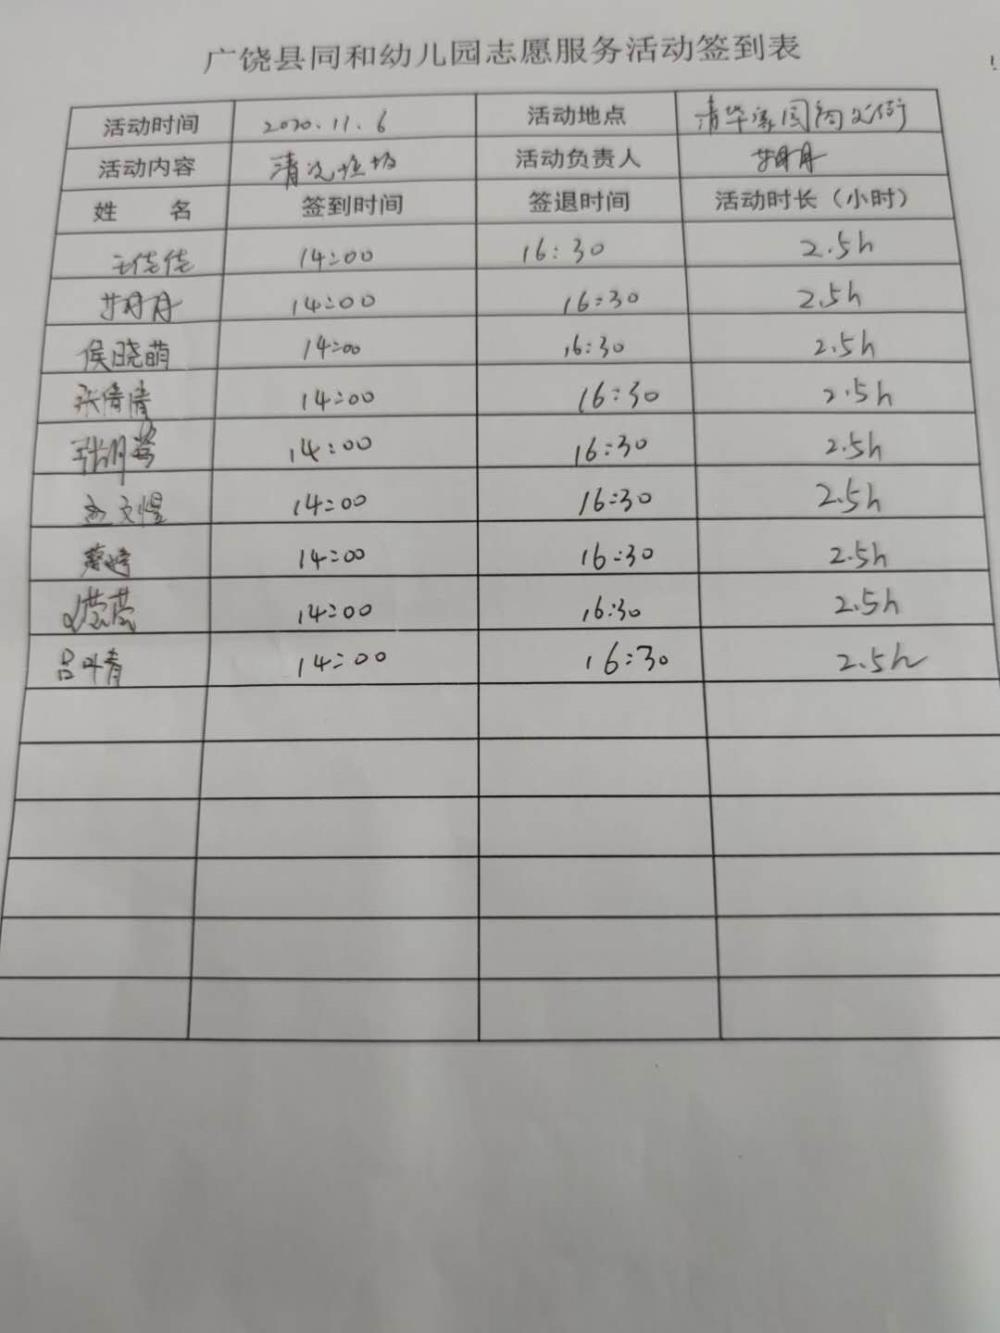 广饶县同和幼儿园志愿服务活动签到表
活动时间 2020.11.6 活动地点 清华家园商业街
活动内容 清洁垃圾 活动负责人
姓 名 签到时间 签退时间 活动时长（小时）
王佳佳 14:00 16:30 2.5h
14:00 16:30 2.5h
侯晓萌 14:00 16:30 2.5h
张倩倩 14:00 16:30 2.5h
14:00 16:30 2.5h
14:00 16:30 2.5h
14:00 16:30 2.5h
14:00 16:30 2.5h
吕叶青 14:00 16:30 2.5h